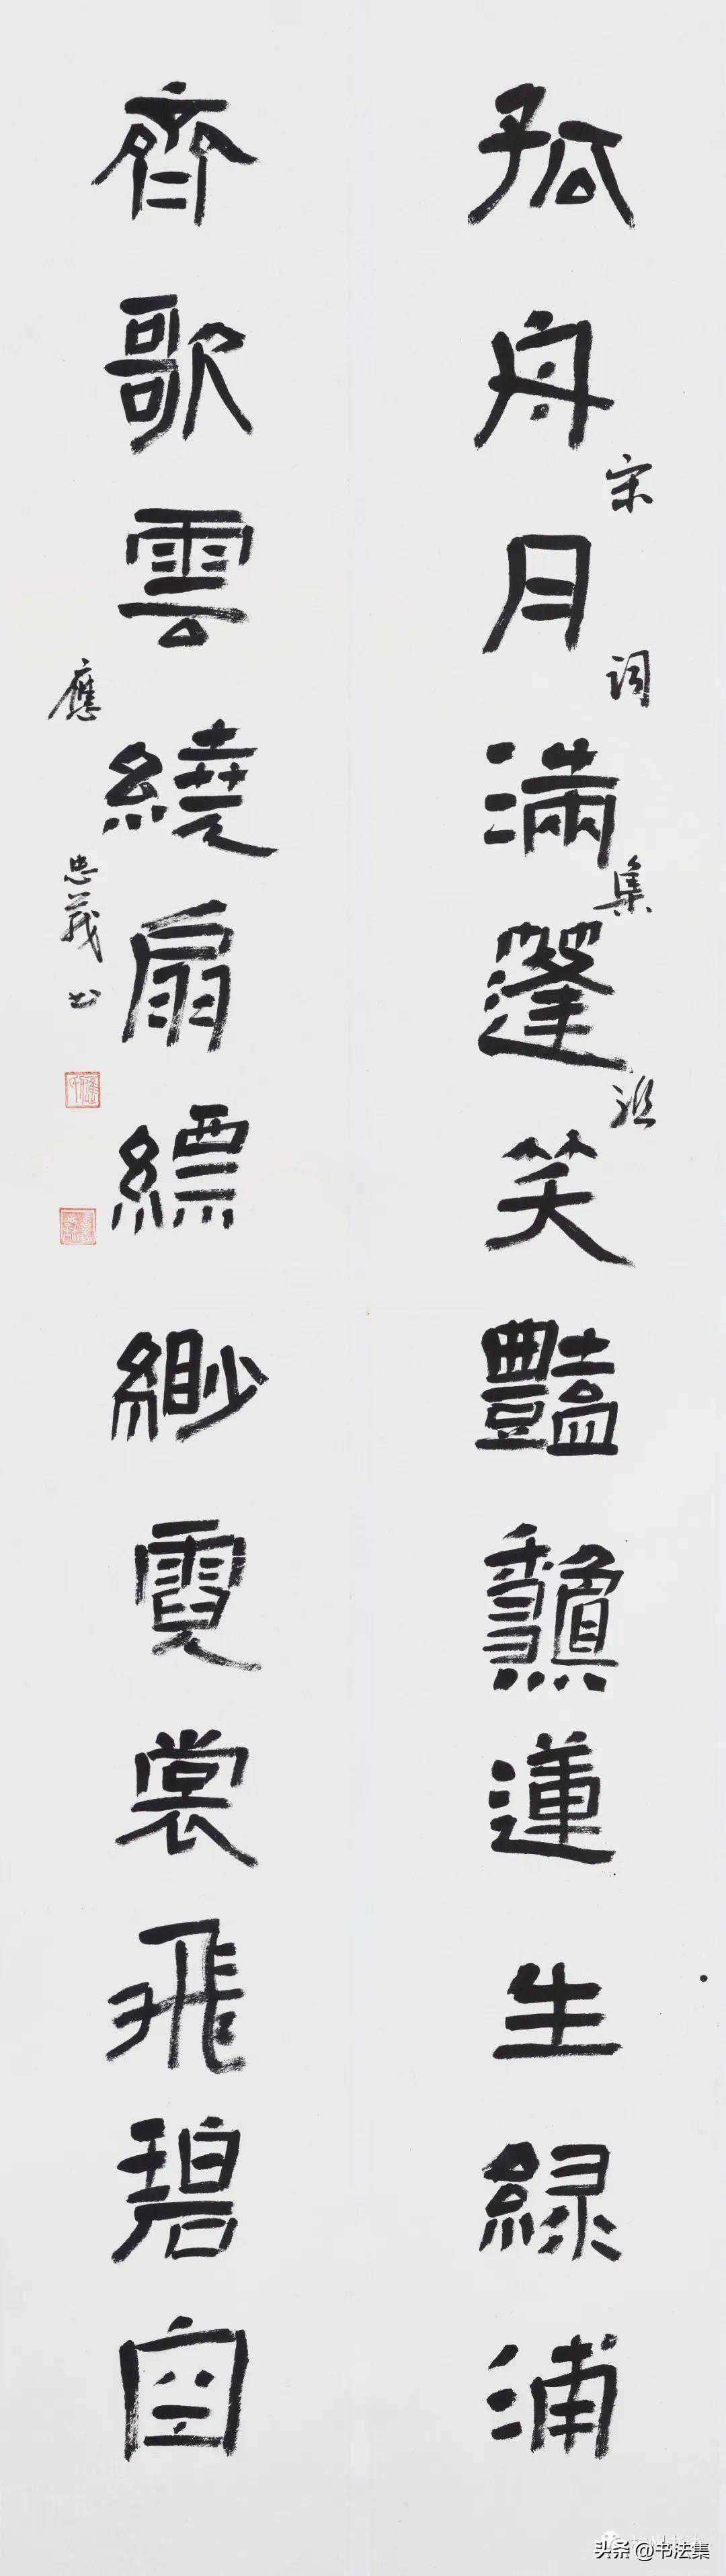 孤舟月滿蓬笑豔龝蓮生綠浦
宋詞集聯
齊歌雲繞扇縹緲霓裳飛碧空
應忠義书
头条 @书法集